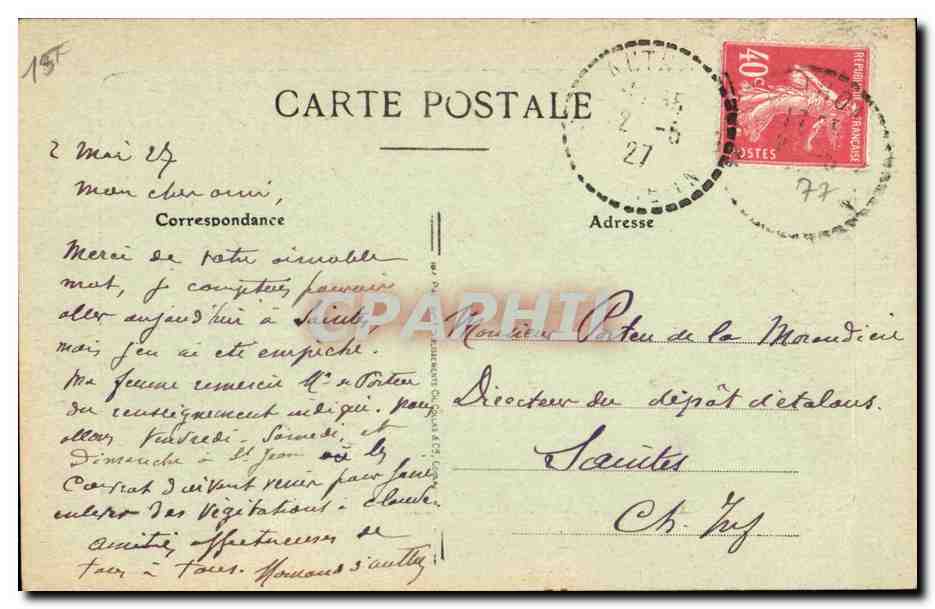 15F
CARTE POSTALE
2 Mai 27
Mon cher ami,
Correspondance
Merci de votre aimable
mot, je comptais pouvoir
aller aujourd'hui à Saintes,
mais j'en ai été empêché.
Ma femme remercie Me de Porteu
du renseignement indiqué. nous
allons Vendredi - Samedi, et
Dimanche à St Jean où les
doivent venir pour faire
enlever des végétations à
amitiés affectueuses de
tous à tous.
Adresse
Monsieur Porteu de la Morandière
Directeur du dépôt d'étalons.
Saintes
Ch. Inf
40c
REPUBLIQUE FRANÇAISE
POSTES
2 - 5
27
77
CPAPHIL